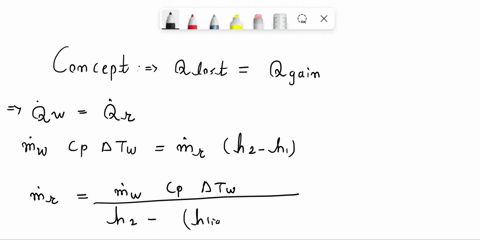 Concept :⇒ Q lost = Q gain
⇒ Q̇w = Q̇r
ṁw Cp ΔTw = ṁr (h2 - h1)
ṁr = ṁw Cp ΔTw
h2 - (hliq